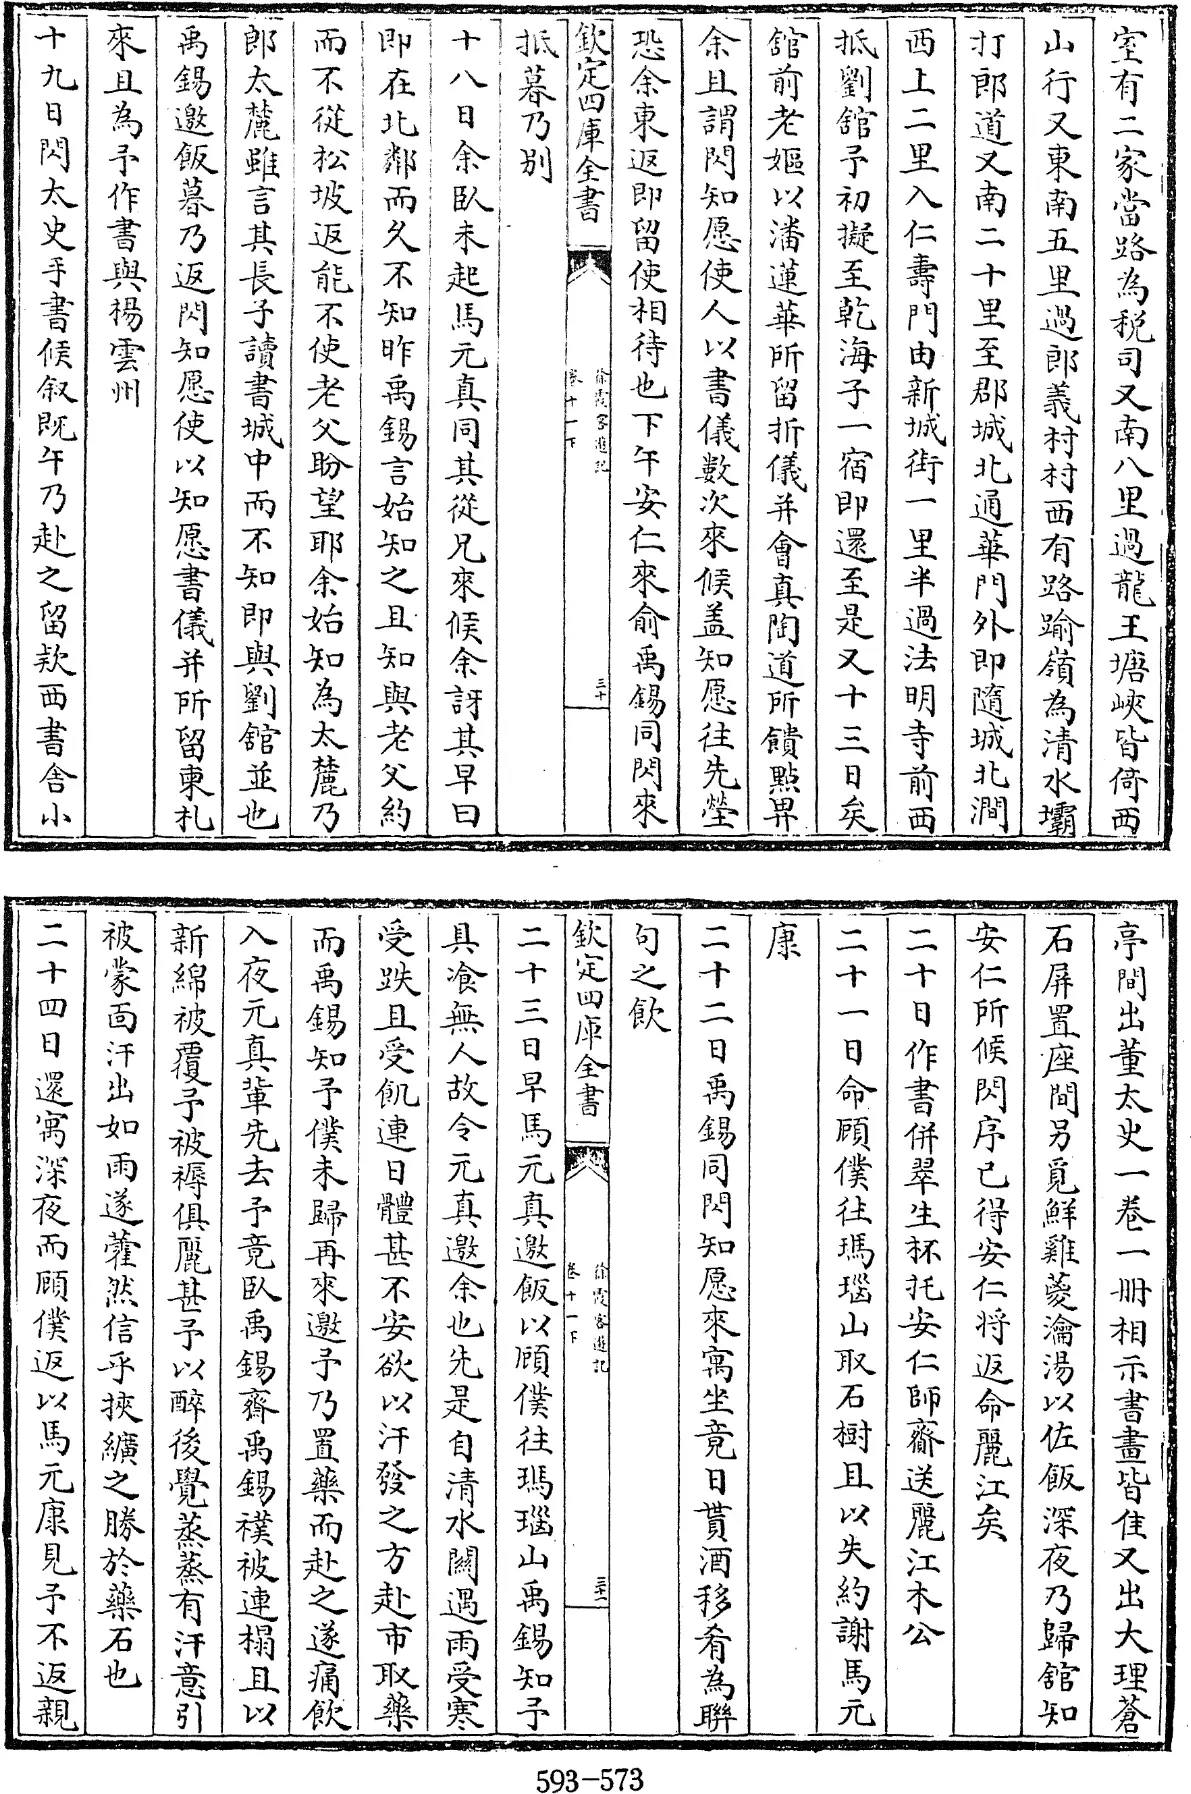 室有二家當路為税司又南八里過龍王塘峽皆倚西
山行又東南五里過郎義村村西有路踰嶺為清水壩
打郎道又南二十里至郡城北通華門外即隨城北澗
西上二里入仁壽門由新城街一里半過法明寺前西
抵劉館予初擬至乾海子一宿即還至是又十三日矣
舘前老嫗以潘蓮華所留折儀并會真陶道所饋點畀
余且謂閃知愿使人以書儀數次來候盖知愿往先塋
恐余東返即留使相待也下午安仁來俞禹錫同閃來
欽定四庫全書
徐霞客遊記
卷十一下
三十
抵暮乃别
十八日余臥未起馬元真同其從兄來候余訝其早曰
即在北鄰而久不知昨禹錫言始知之且知與老父約
而不從松坡返能不使老父盼望耶余始知為太麓乃
郎太麓雖言其長子讀書城中而不知即與劉舘並也
禹錫邀飯暮乃返閃知愿使以知愿書儀并所留柬札
來且為予作書與楊雲州
十九日閃太史手書候叙既午乃赴之留欵西書舎小
亭間出董太史一卷一冊相示書畫皆佳又出大理蒼
石屏置座間另覓鮮雞葼瀹湯以佐飯深夜乃歸舘知
安仁所候閃序已得安仁将返命麗江矣
二十日作書併翠生杯托安仁師齎送麗江木公
二十一日命顧僕往瑪瑙山取石樹且以失約謝馬元
康
二十二日禹錫同閃知愿來寓坐竟日貰酒移肴為聯
句之飲
欽定四庫全書
徐霞客遊記
卷十一下
三十一
二十三日早馬元真邀飯以顧僕往瑪瑙山禹錫知予
具飡無人故令元真邀余也先是自清水關遇雨受寒
受跌且受飢連日體甚不安欲以汗發之方赴市取藥
而禹錫知予僕未歸再來邀予乃置藥而赴之遂痛飲
入夜元真輩先去予竟臥禹錫齋禹錫襆被連榻且以
新綿被覆予被褥俱麗甚予以醉後覺蒸蒸有汗意引
被蒙面汗出如雨遂藿然信乎挾纊之勝於藥石也
二十四日還寓深夜而顧僕返以馬元康見予不返親
593-573